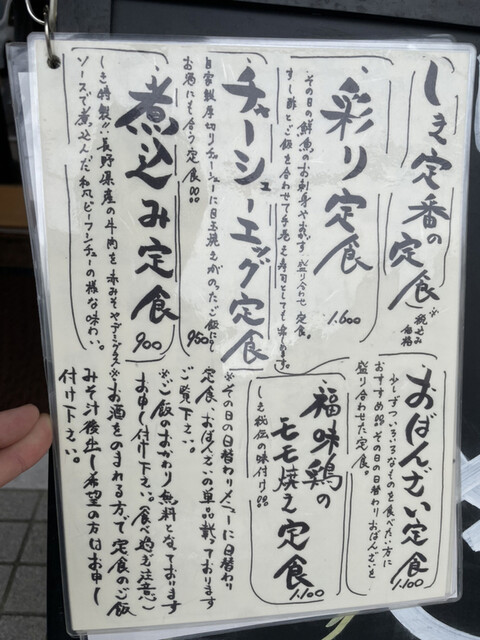 しき定番の
定食 ※税込み
価格
彩り定食
その日の鮮魚のお刺身やおかず盛り合わせ定食。
すし酢とご飯を合わせて手巻き寿司としても楽めます。
1.600
チャーシューエッグ定食
自家製厚切りチャーシューに目玉焼きがのったご飯にも
お酒にも合う定食!!
950
煮込み定食
しき特製!!長野県産の牛肉を赤みそやデミグラス
ソースで煮込んだ和風ビーフシチューの様な味わい。
900
おばんざい定食
少しずついろいろなものを食べたい方に
おすすめ!!その日の日替わりおばんざいを
盛り合わせた定食。
1.100
福味鶏の
モモ焼き定食
しき秘伝の味付け!!
1.100
※その日の日替わりメニューに日替わり
定食、おばんざいの単品載っております
ご覧下さい。
※ご飯のおかわり無料となっております
お申し付け下さい。(食べ過ぎ注意)
※お酒をのまれる方で定食のご飯
みそ汁後出し希望の方はお申し
付け下さい。